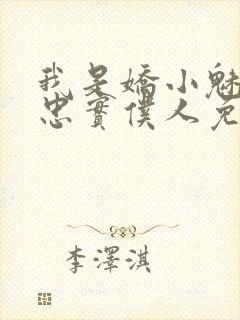 我是嬌小魅
忠實僕人免
李澤淇